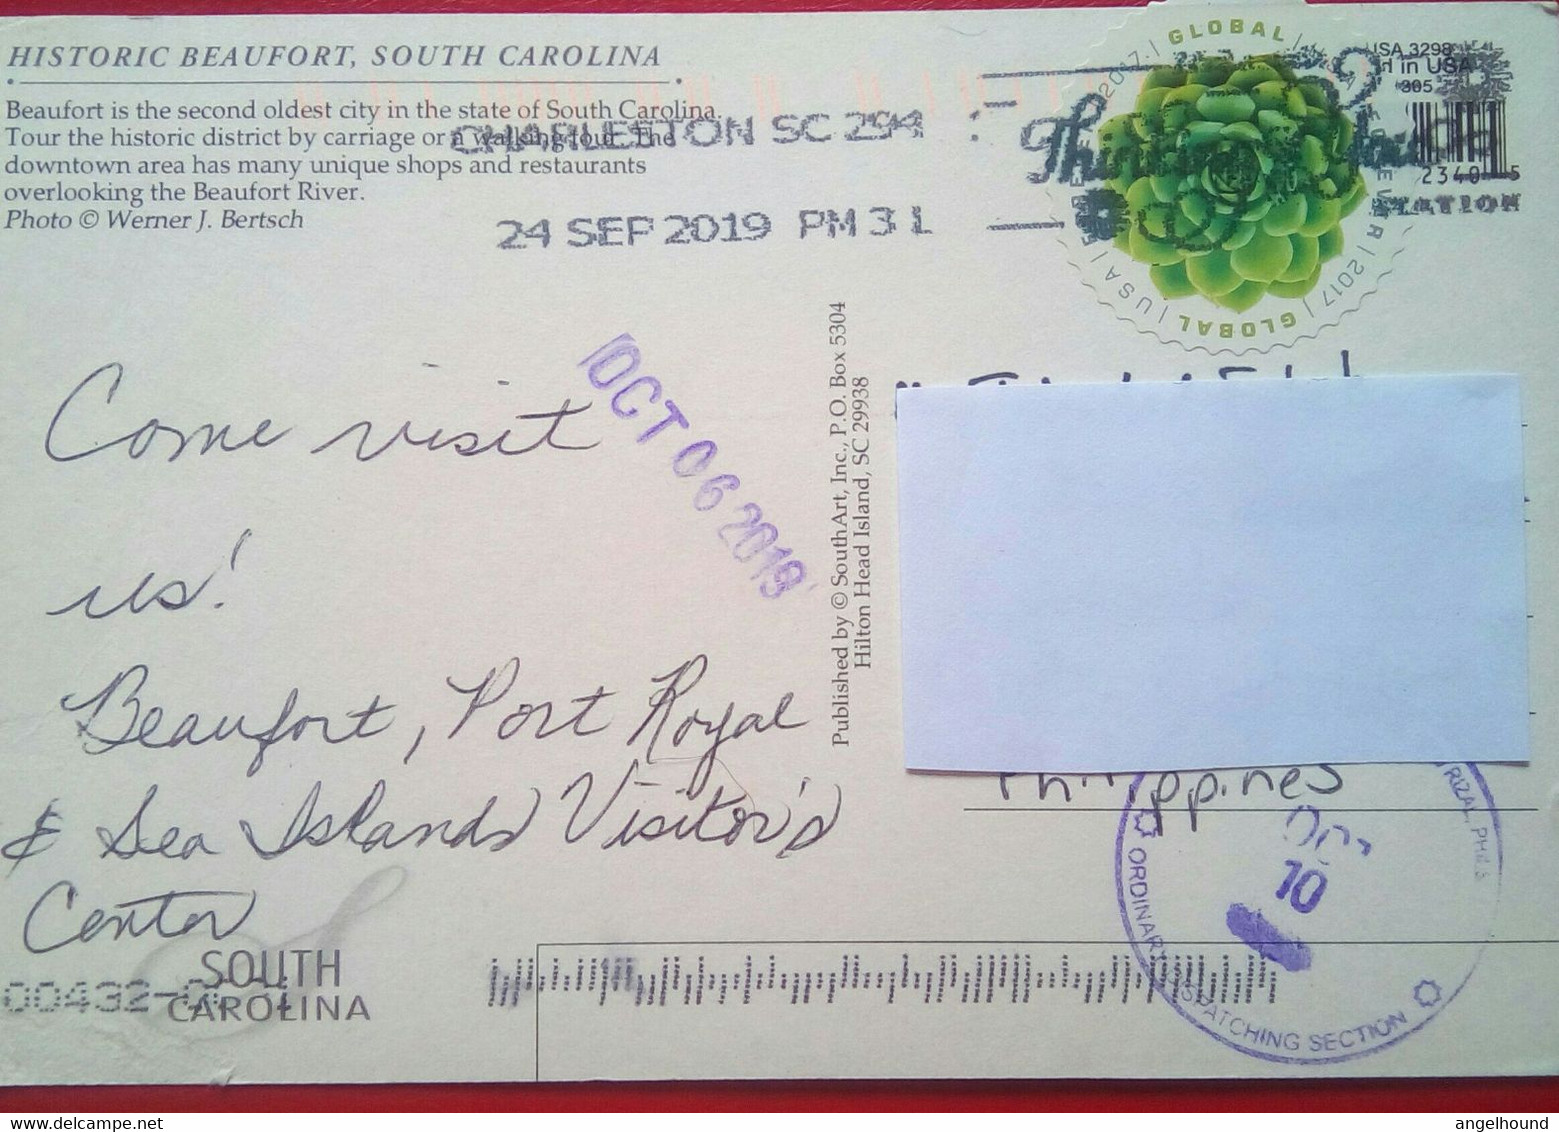 HISTORIC BEAUFORT, SOUTH CAROLINA
Beaufort is the second oldest city in the state of South Carolina.
Tour the historic district by carriage or a walking tour. The
downtown area has many unique shops and restaurants
overlooking the Beaufort River.
Photo © Werner J. Bertsch
CHARLESTON SC 294
24 SEP 2019 PM 3 L
GLOBAL
2017
USA
FOREVER
2017
GLOBAL
USA
USA 3298
in USA
305
2340 5
Thinking
STATION
OCT 06 2019
Come visit
us!
Beaufort, Port Royal
& Sea Islands Visitor's
Center
SOUTH
CAROLINA
00432
Published by © SouthArt, Inc., P.O. Box 5304
Hilton Head Island, SC 29938
Philippines
RIZAL, PHILS
10
ORDINARY DISPATCHING SECTION
angelhound